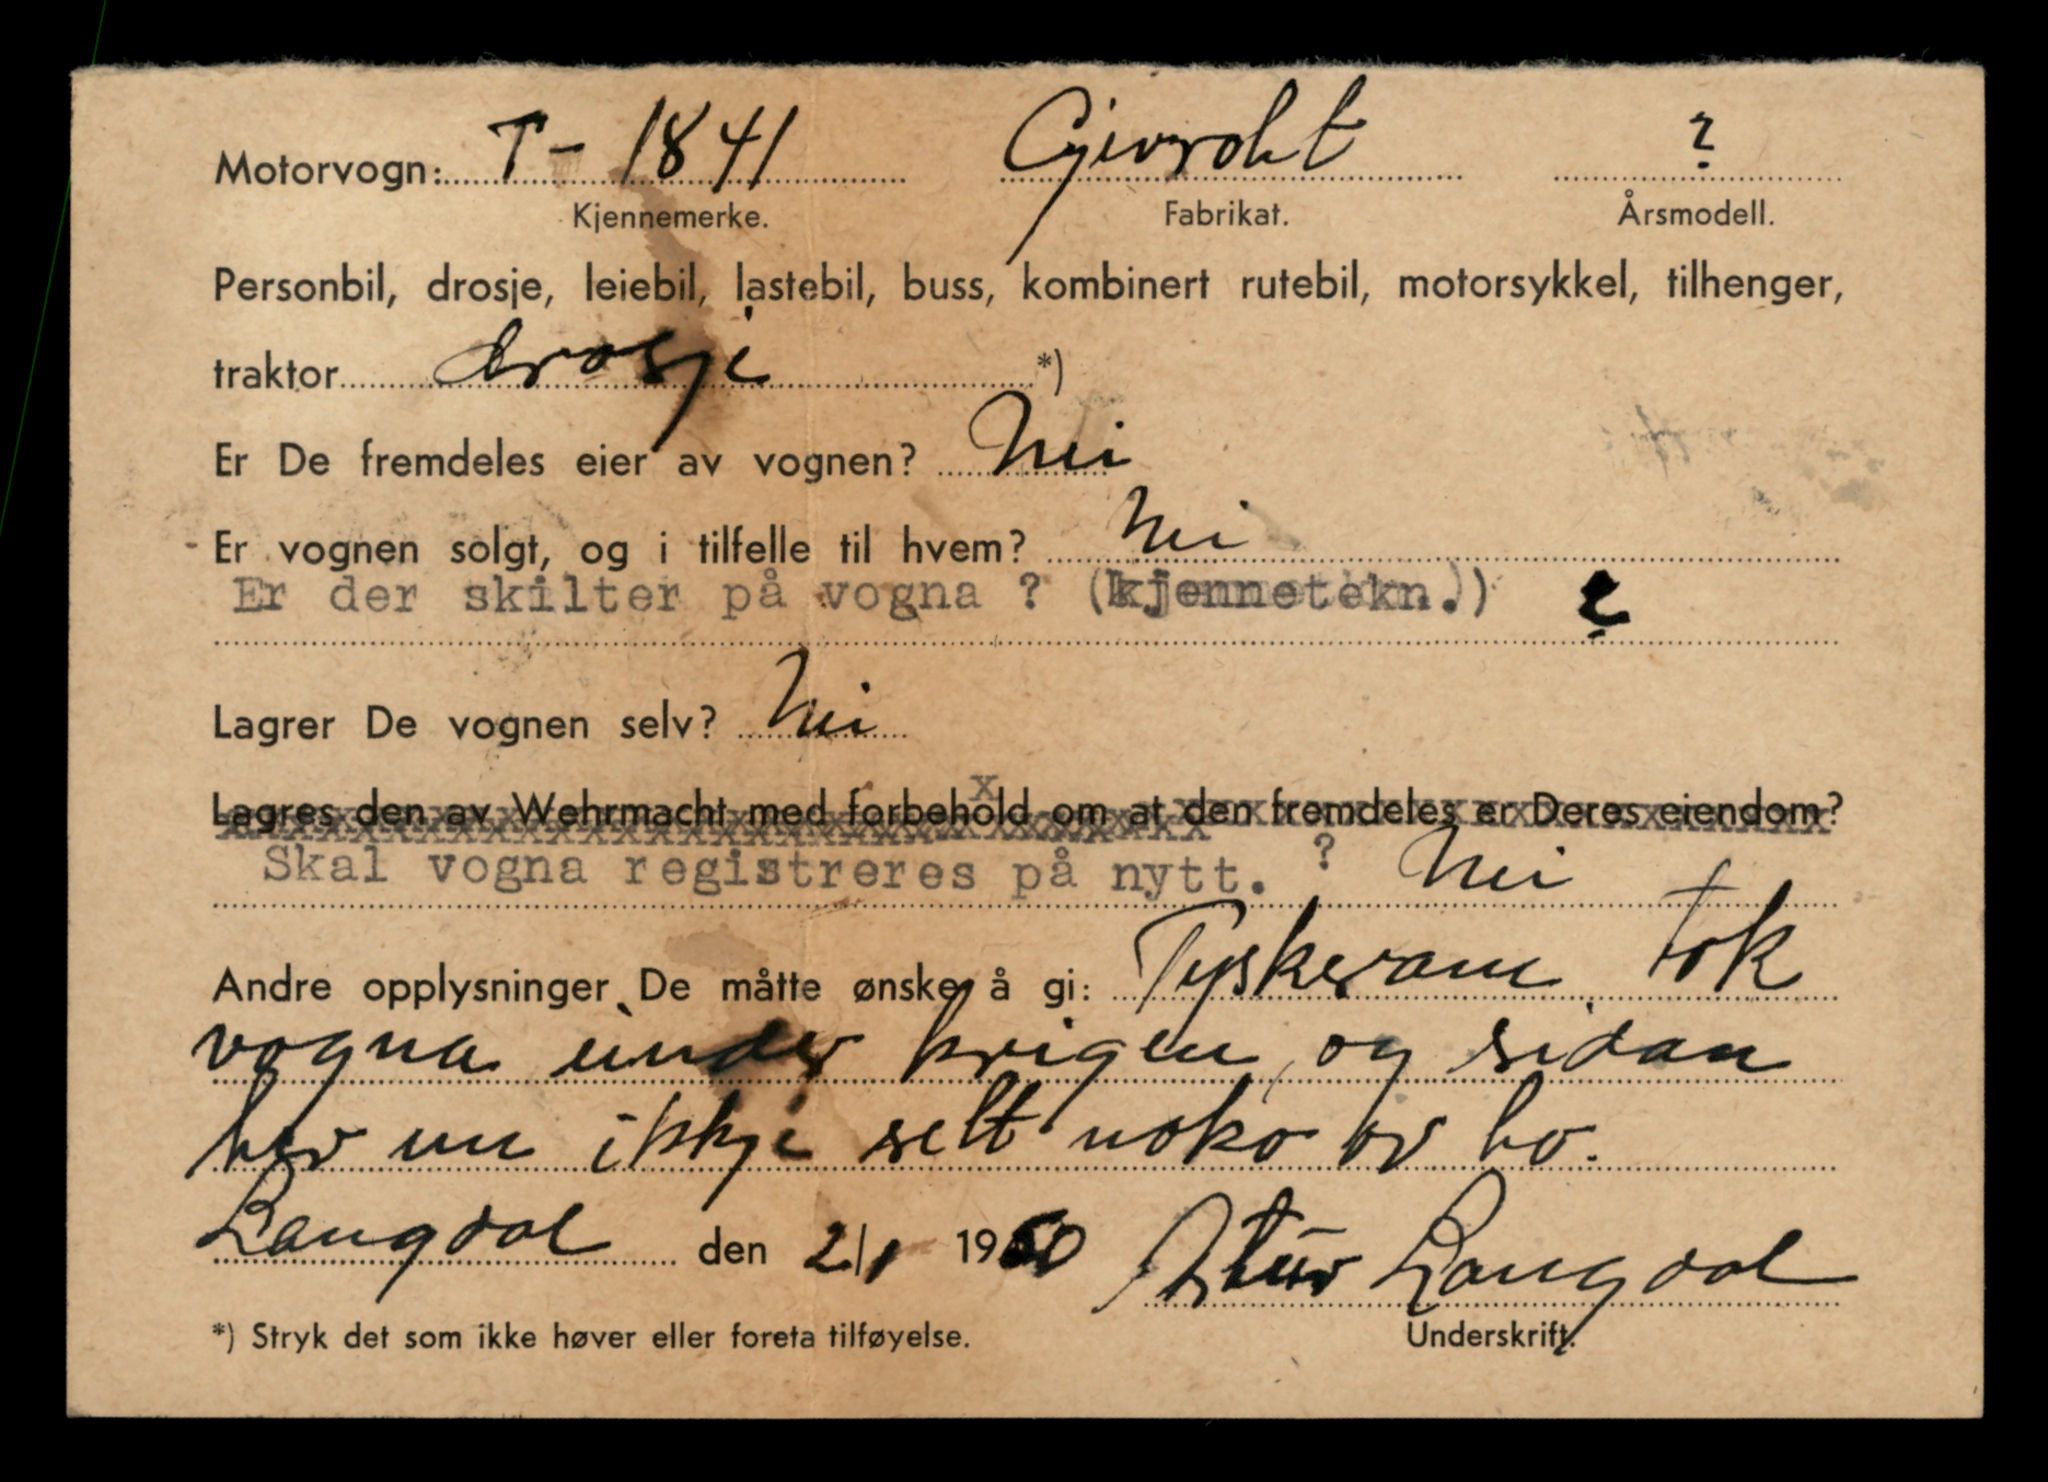 Motorvogn: T - 1841 Gjevrolet ?
Kjennemerke. Fabrikat. Årsmodell.
Personbil, drosje, leiebil, lastebil, buss, kombinert rutebil, motorsykkel, tilhenger,
traktor drosje *)
Er De fremdeles eier av vognen? Nei
Er vognen solgt, og i tilfelle til hvem? Nei
Er der skilter på vogna ? (kjennetekn.)) ?
Lagrer De vognen selv? Nei
Lagres den av Wehrmacht med forbehold om at den fremdeles er Deres eiendom?
Skal vogna registreres på nytt. ? Nei
Andre opplysninger De måtte ønske å gi: Tyskerane tok
vogna under krigen, og sidan
hev me ikkje sett noko av ho.
Langdal den 2/1 1950 Langdal
*) Stryk det som ikke høver eller foreta tilføyelse. Underskrift.